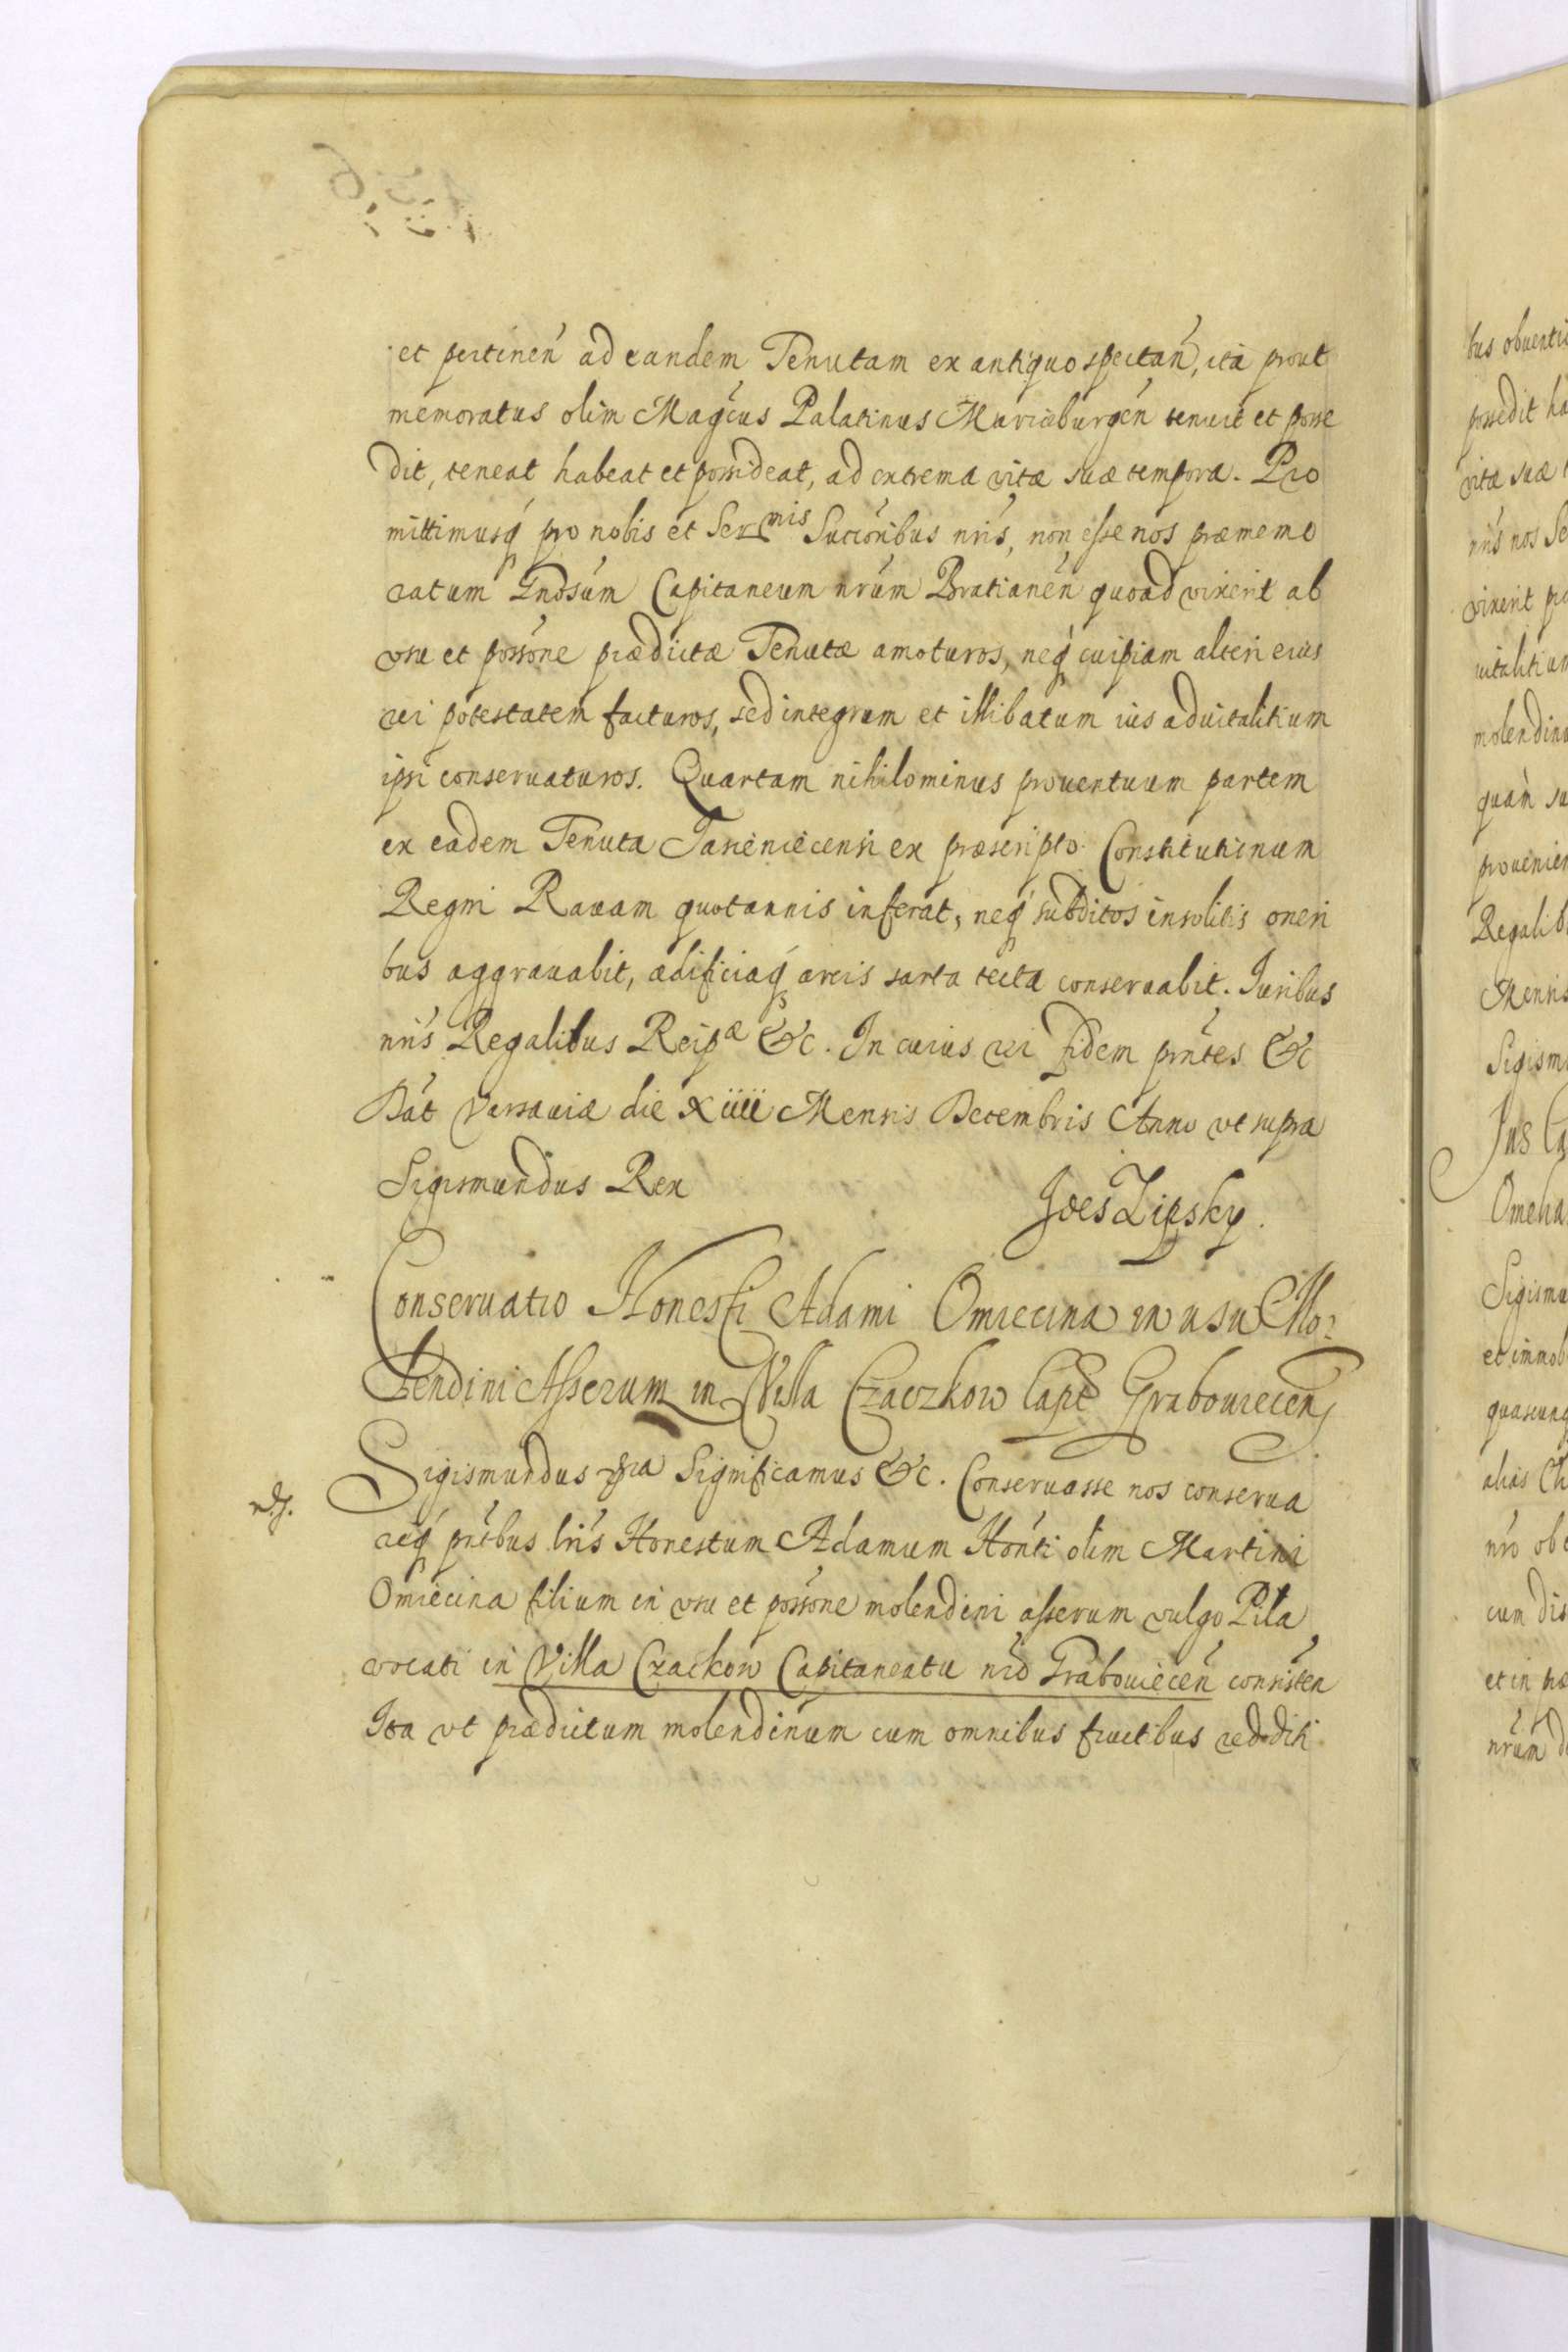 et pertineń ad eandem Tenutam ex antiquo spectań, ita prout
memoratus olim Magcus Palatinus Mariæburgeń tenuit et posse
dit, teneat habeat et possideat, ad extrema vitæ suæ tempora. Pro
mittimusq pro nobis et Sermis Succoribus nris, non esse nos præmemo
ratum Gnosum Capitaneum nrum Bratianeń quoad vixerit ab
usu et possone prædictæ Tenutæ amoturos, neq cuipiam alteri eius
rei potestatem facturos, sed integrum et illibatum ius aduitalitium
ipsi conseruaturos. Quartam nihilominus prouentuum partem
ex eadem Tenuta Jasieniecensi ex præscripto Constitutionum
Regni Rauam quotannis inferat, neq subditos insolitis oneri
bus aggrauabit, ædificiaq arcis sarta tecta conseruabit. Juribus
nris Regalibus Reipæ &c. In cuius rei fidem pntes &c
Dat Varsauiæ die xiiii Mensis Decembris Anno vt supra
Sigismundus Rex
Joes Lipsky.
Conseruatio Honesti Adami Omiecina in usu Mo:
lendini Asserum in Villa Czaczkow Capt Grabouiecen
Sigismundus 3tia Significamus &c. Conseruasse nos conserua
req pntibus lris Honestum Adamum Honti olim Martini
Omiecina filium in vsu et possone molendini asserum vulgo Pila
vocati in Villa Czackow Capitaneatu nro Grabouieceń consisten
Ita vt prædictum molendinum cum omnibus fructibus redditi